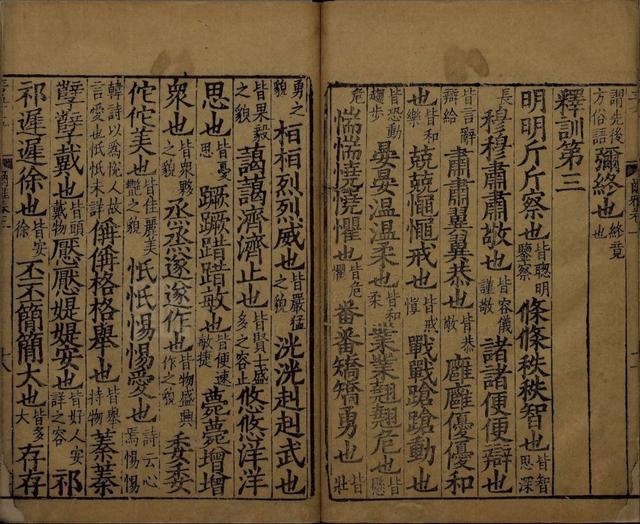 謂先後方俗語彌終也終竟也
釋訓第三
明明斤斤察也皆聰明鑒察條條秩秩智也皆智思深
長穆穆肅肅敬也皆容儀謹敬諸諸便便辯也
皆言辭辯給肅肅翼翼恭也皆恭敬廱廱優優和
也皆和樂兢兢憴憴戒也皆戒慎戰戰蹌蹌動也
皆恐動趨步晏晏溫溫柔也皆和柔業業翹翹危也皆懸
危惴惴憢憢懼也皆危懼番番矯矯勇也皆壯
勇之貌桓桓烈烈威也皆嚴猛之貌洸洸赳赳武也
皆果毅之貌藹藹濟濟止也皆賢士盛多之容止悠悠洋洋
思也皆憂思蹶蹶踖踖敏也皆便速敏捷薨薨增增
衆也皆衆夥之貌丞丞遂遂作也皆物盛興作之貌委委
佗佗美也皆佳麗美豔之貌忯忯惕惕愛也詩云心焉惕惕
韓詩以為悅人故言愛也忯忯未詳偁偁格格舉也皆舉持物蓁蓁
孽孽戴也皆頭戴物懕懕媞媞安也皆好人安詳之容祁
祁遲遲徐也皆安徐丕丕簡簡大也皆多大存存